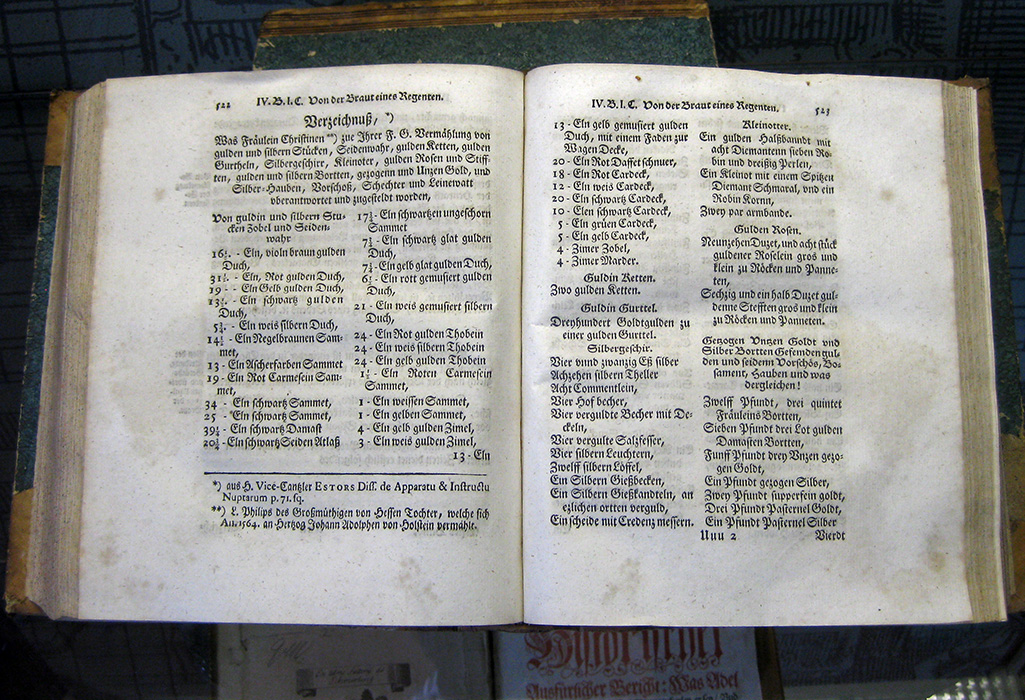 522
IV. B. I. C. Von der Braut eines Regenten.
Verzeichnuß, *)
Was Fräulein Christinen **) zue Ihrer F. G. Vermählung von
gulden und silbern Stücken, Seidenwahr, gulden Ketten, gulden
Gurtheln, Silbergeschirr, Kleinoter, gulden Rosen und Stiff-
ten, gulden und silbern Bortten, gezogenn und Unzen Gold, und
Silber-Hauben, Vorschoß, Schechter und Leinewatt
vberantwortet und zugestelt worden,
Von guldin und silbern Stu-
cken Zobel und Seiden-
wahr
16½. - Eln, violnbraun gulden
Duch,
31½. - Eln, Rot gulden Duch,
19 - - Eln Gelb gulden Duch,
13½. - Eln schwartz gulden
Duch,
5¾. - Eln weis silbern Duch,
14½ - Eln Negelbraunen Sam-
met,
13 - Eln Ascherfarben Sammet
19 - Eln Rot Carmesein Sam-
met,
34 - Eln schwartz Sammet,
25 - Eln schwartz Sammet,
39¼ - Eln schwartz Damast
20½ - Eln schwartz Seiden Atlaß
17½ - Eln schwartzen ungeschorn
Sammet
7½ - Eln schwartz glat gulden
Duch,
7½ - Eln gelb glat gulden Duch,
6½ - Eln rott gemusiert gulden
Duch,
21 - Eln weis gemusiert silbern
Duch,
24 - Eln Rot gulden Thobein
24 - Eln weis silbern Thobein
24 - Eln gelb gulden Thobein
1½ - Eln Roten Carmesein
Sammet,
1 - Eln weissen Sammet,
1 - Eln gelben Sammet,
4 - Eln gelb gulden Zimel,
3 - Eln weis gulden Zimel,
13 - Eln
*) aus H. Vice-Cantzler ESTORS Diss. de Apparatu & Instructu
Nuptarum p. 71. sq.
**) L. Philips des Großmüthigen von Hessen Tochter, welche sich
An. 1564. an Hertzog Johann Adolphen von Holstein vermählt.
IV. B. I. C. Von der Braut eines Regenten.
523
13 - Eln gelb gemusiert gulden
Duch, mit einem Faden zur
Wagen Decke,
20 - Eln Rot Daffet schnuer,
18 - Eln Rot Cardeck,
12 - Eln weis Cardeck,
20 - Eln schwartz Cardeck,
10 - Elen schwartz Cardeck,
5 - Eln grüen Cardeck,
5 - Eln gelb Cardeck,
4 - Zimer Zobel,
4 - Zimer Marder.
Guldin Ketten.
Zwo gulden Ketten.
Guldin Gurttel.
Dreyhundert Goldtgulden zu
einer gulden Gurttel.
Silbergeschir.
Vier vnnd zwanzig Eß silber
Achzehen silbern Theller
Acht Commentlein,
Vier Hof becher,
Vier verguldte Becher mit De-
ckeln,
Vier vergulte Salzfesser,
Vier silbern Leuchtern,
Zwelff silbern Löffel,
Ein Silbern Gießbecken,
Ein Silbern Gießkandteln, an
ezlichen ortten verguld,
Ein scheide mit Credenz messern.
Kleinotter.
Ein gulden Halßbanndt mit
acht Diemantenn sieben Ro-
bin und dreißig Perlen,
Ein Kleinot mit einem Spitzen
Diemant Schmaral, vnd ein
Robin Kornn,
Zwey par armbande.
Gulden Rosen.
Neunzehen Duzet, und acht stück
guldener Roselein gros und
klein zu Röcken und Panne-
ten,
Sechzig und ein halb Duzet gul-
denne Stefften gros und klein
zu Röcken und Panneten.
Gezogen Vnzen Goldt vnd
Silber Bortten Gesenden gul-
den und seidenn Vorschös, Bo-
sament, Hauben und was
dergleichen!
Zwelff Pfundt, drei quintet
Fräuleins Bortten,
Sieben Pfundt drei Lot gulden
Damasten Bortten,
Funff Pfundt drey Vnzen gezo-
gen Goldt,
Ein Pfundt gezogen Silber,
Zwey Pfundt supperfein goldt,
Drei Pfundt Pasternel Goldt,
Ein Pfundt Pasternel Silber
Uuu 2
Vierdt
Ausfürlicher Bericht: Was Adel